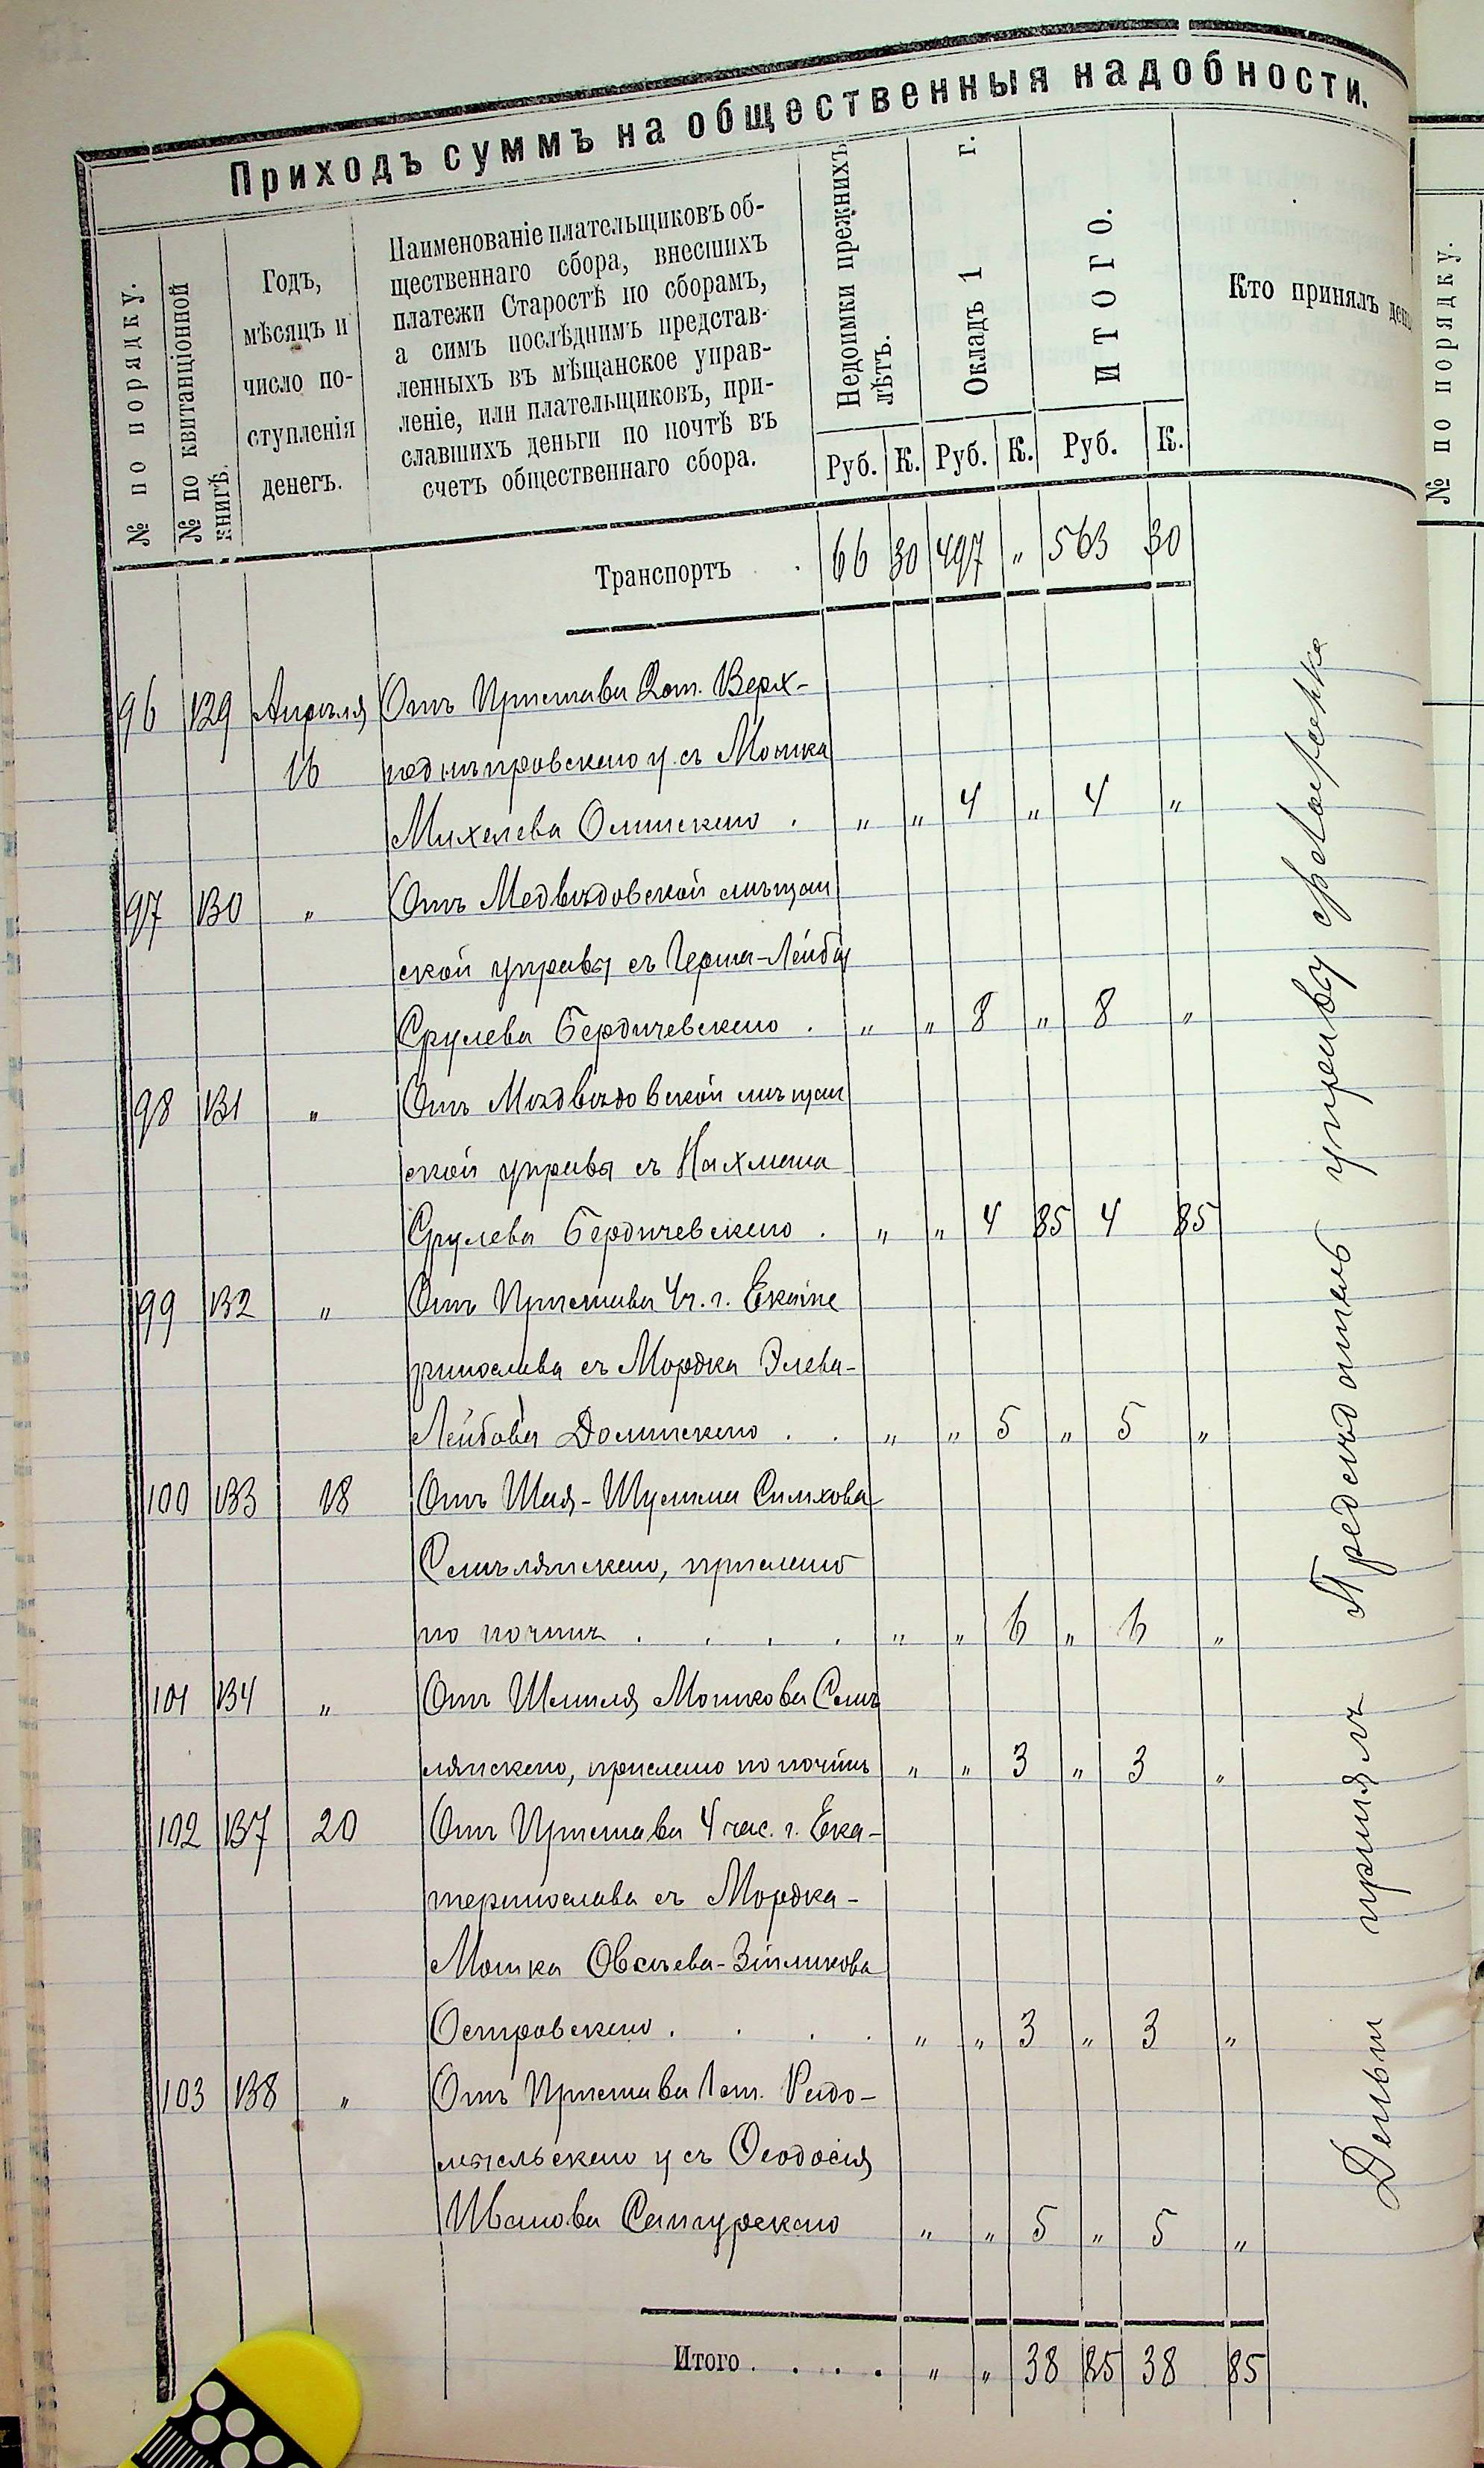 Приходъ суммъ на общественныя надобности.
№ по порядку.
№ по квитанціонной
книгѣ.
Годъ,
мѣсяцъ и
число по-
ступленія
денегъ.
Наименованіе плательщиковъ об-
щественнаго сбора, внесшихъ
платежи Старостѣ по сборамъ,
а симъ послѣднимъ представ-
ленныхъ въ мѣщанское управ-
леніе, или плательщиковъ, при-
славшихъ деньги по почтѣ въ
счетъ общественнаго сбора.
Недоимки прежнихъ
лѣтъ.
Окладъ 1 г.
ИТОГО.
Кто принялъ
Руб. К. Руб. К. Руб. К.
Транспортъ . 66 30 497 „ 563 30
96 129 Апрѣля Отъ Пристава 2 ст. Верх-
16 неднѣпровскаго у. съ Мошка
Михелева Олинскаго . „ „ 4 „ 4 „
97 130 „ Отъ Медвѣдовской мѣщан
ской управы съ Герша-Лейбы
Срулева Бердичевскаго . „ „ 8 „ 8 „
98 131 „ Отъ Медвѣдовской мѣщан
ской управы съ Нахмана
Срулева Бердичевскаго . „ „ 4 85 4 85
99 132 „ Отъ Пристава 4 ч. г. Екате
ринослава съ Мордка Элева-
Лейбова Долинскаго . . „ „ 5 „ 5 „
100 133 18 Отъ Шая-Шулима Симхова
Смѣлянскаго, прислано
по почтѣ . . . . „ „ 6 „ 6 „
101 134 „ Отъ Шмиля Мошкова Смѣ
лянскаго, прислано по почтѣ „ „ 3 „ 3 „
102 137 20 Отъ Пристава 4 час. г. Ека-
теринослава съ Мордка-
Мошка Овсѣева-Зиликова
Островскаго . . . . „ „ 3 „ 3 „
103 138 „ Отъ Пристава 1 ст. Радо-
мысльскаго у съ Ѳеодосія
Иванова „ „ 5 „ 5 „
Итого . . . . . „ „ 38 85 38 85
Деньги принялъ Предсѣдатель управы
№ по порядку.